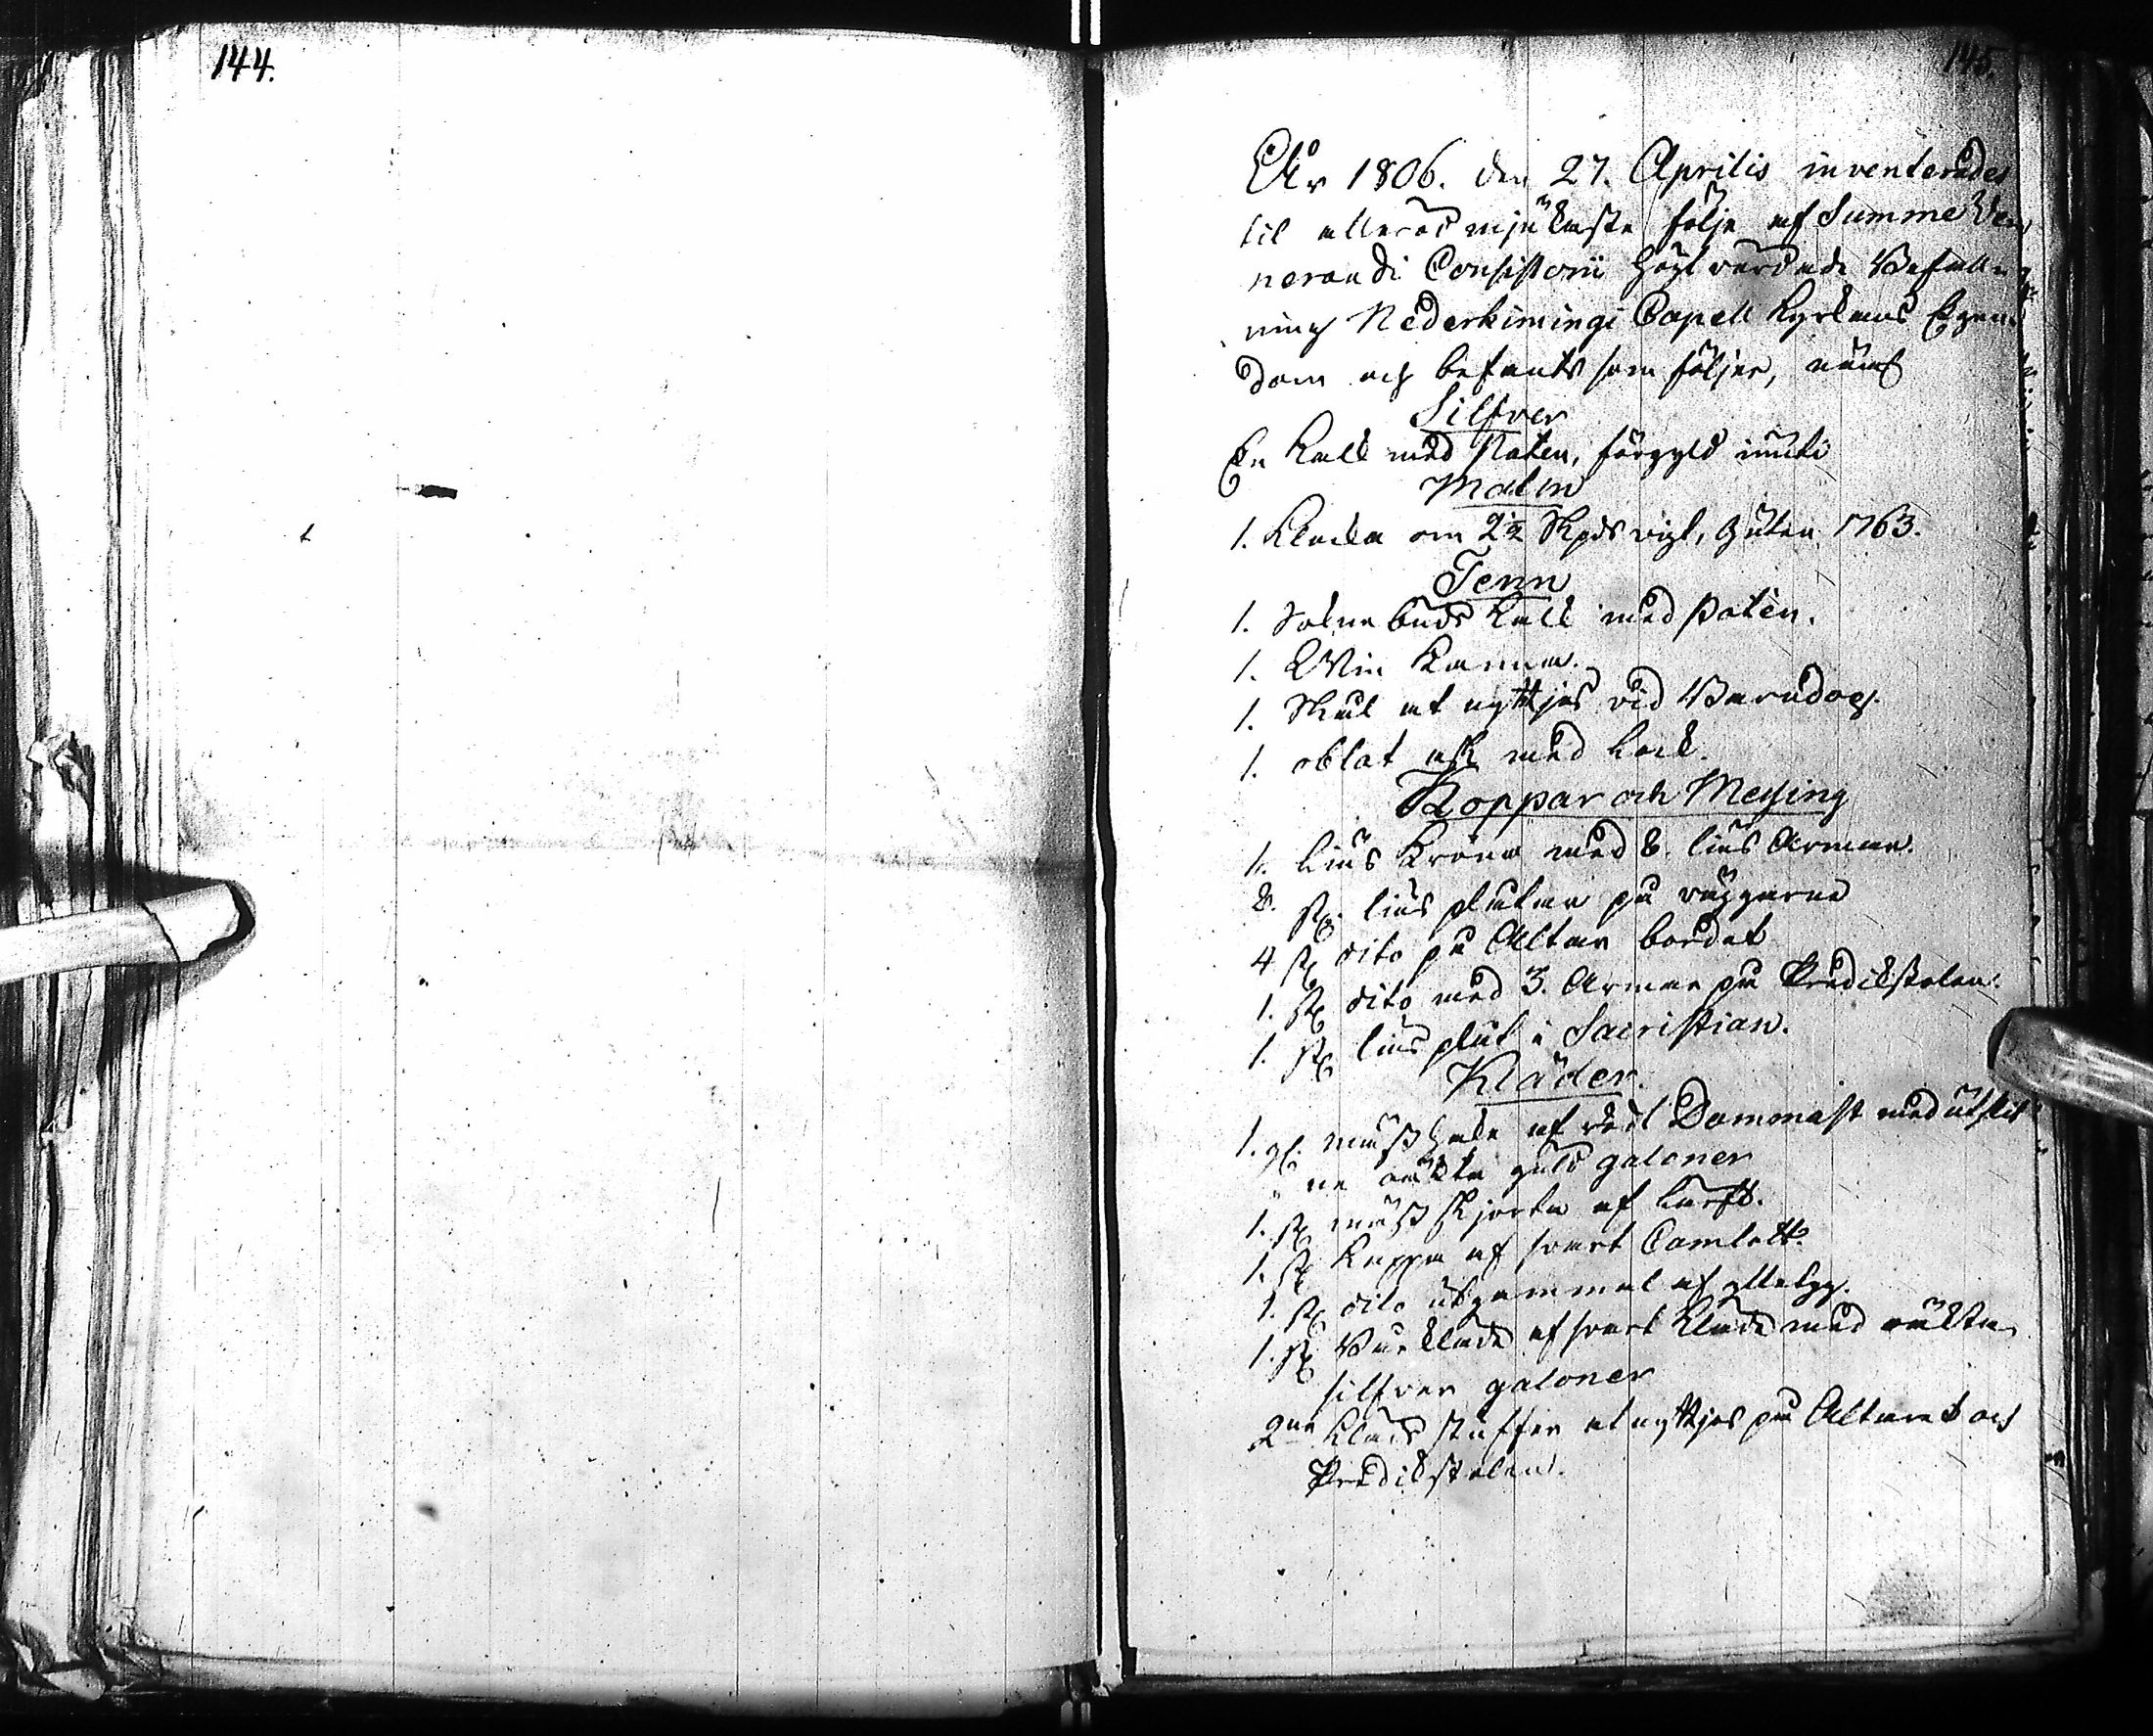 144.
145.
År 1806. den 27. Aprilis inventerades
til alleröd mjukaste följe af Summe Ve
nerandi Consistorii högtvördade Befall
ning Nederkimingi Capell Kyrkans Egen
dom och befants som följer, näml
Silfver
En Kalk med Paten, förgyld inuti
Malm
1. Klocka om 2½ Skpds vigt, guten 1763.
Tenn
1. Sokne buds Kalk med Paten.
1. Win Kanna.
1. Skål at nyttjas vid Barndop.
1. oblat ask med Lock.
Koppar och Messing
1. Lius Krona med 8. lius Armar.
8. st. lius plåtar på väggarne
4 st dito på Altar bordet
1. st dito med 3. Armar på Predikstolen.
1. st lius plåt i Sacristian.
Kläder.
1. mässhake af röd Dammast med utslit
ne oäkta guld galoner
1. st mäss skjorta af Lärft.
1. st Kappa af svart Camlott.
1. st dito utgammal af
1. st Bårkläde af svart Kläde med oäkta
silfver galoner
2ne Kläds stuffer at nyttjas på Altaret och
Predikstolen.